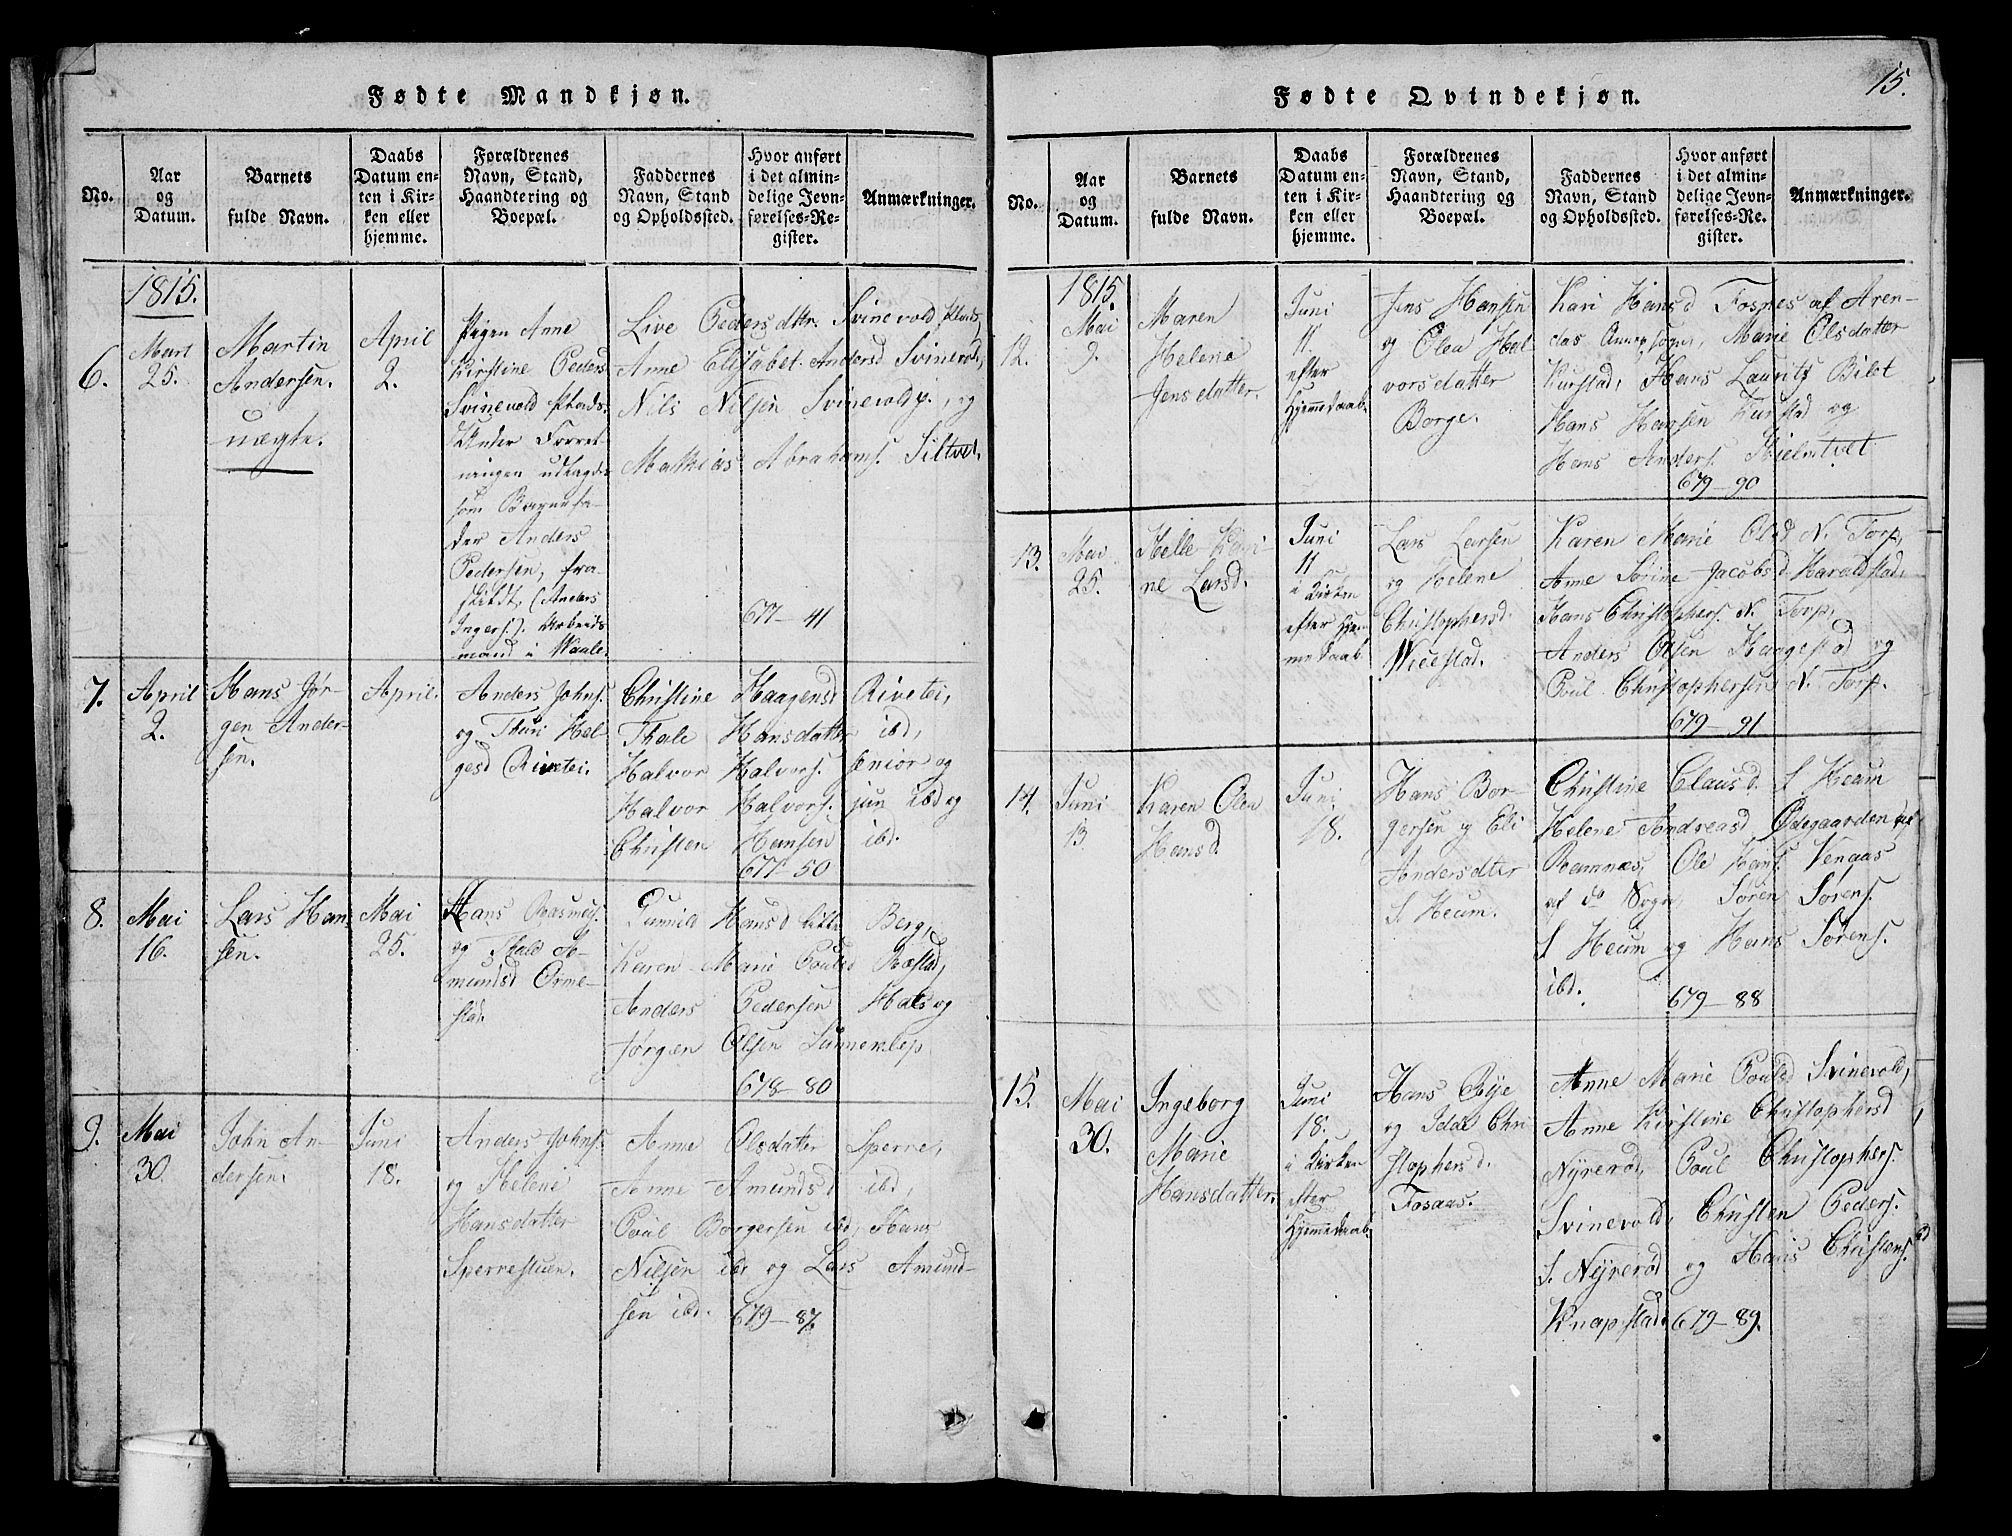 Fødte Mandkjøn.
No.
Aar
og
Datum.
Barnets
fulde Navn.
Daabs
Datum en-
ten i Kir-
ken eller
hjemme.
Forældrenes
Navn, Stand,
Haandtering og
Boepæl.
Faddernes
Navn, Stand
og Opholdssted.
Hvor anført
i det almin-
delige Jevn-
førelses-Re-
gister.
Anmærkninger.
1815.
6.
Mart
25.
Martin
Andersen.
uægte.
April
2.
Pigen Anne
Kirstine Peders
Svinevold Plads.
Under Forret-
ningen udlagdes
som Barnefa-
der Anders
Pedersen, fra-
skildt, (Anders
Ingers.). Arbeids
mand i Vaale.
Live Peders dttr. Svinevold Plads,
Anne Elisabet Andersd Svinevold,
Nils Nilsen Svinevoldp., og
Mathias Abrahams. Siltvet,
677-41
7.
April
2.
Hans Jør-
gen Ander-
sen.
April.
Anders Johns.
og Thuri Hel-
gesd Rivetei.
Christine Haagensd Rivetei,
Thale Hansdatter ibd,
Halvor Halvors. senior og
Halvor Halvors. jun ibd og
Christen Hansen ibd.
677-50
8.
Mai
16.
Lars Han
sen.
Mai
25.
Hans Rasmus.
og Thald A-
mundsd Orme-
stad.
Gunild Hansd litle Berg,
Karen Marie Poulsd Røstad,
Anders Pedersen Hals og
Jørgen Olsen Sunneklep
678-80
9.
Mai
30.
John An-
dersen.
Juni
18.
Anders Johns.
og Helene
Hansdatter
Sperrestuen.
Anne Olsdatter Sperre,
Anne Amundsd ibd,
Poul Borgersen ibd, Hans
Nilsen ibd og Lars Amund-
sen ibd. 679-87
15.
Fødte Qvindekjøn.
No.
Aar
og
Datum.
Barnets
fulde Navn.
Daabs
Datum en-
ten i Kir-
ken eller
hjemme.
Forældrenes
Navn, Stand,
Haandtering og
Boepæl.
Faddernes
Navn, Stand
og Opholdssted.
Hvor anført
i det almin-
delige Jevn-
førelses-Re-
gister.
Anmærkninger.
1815.
12.
Mai
9.
Maren
Helene
Jensdatter.
Juni
11.
efter
Hjemmedaab.
Jens Hansen
og Olea Hal
vorsdatter
Borge.
Kari Hansd Fosnes af Aren-
das Annexsogn, Marie Olsdatter
Kurstad, Hans Laurits Bilet
Hans Hansen Kurstad og
Hans Anders. Hielmtvet
679-90
13.
Mai
25.
Helle Kari-
ne Larsd.
Juni
11
i Kirken
efter Hjem
medaab
Lars Larsen
og Helene
Christophersd.
Wicestad.
Karen Marie Olsd N. Torp,
Anne Sorine Jacobsd Haraldstad,
Hans Christophers. N. Torp,
Anders Olsen Haugestad og
Poul Christophersen N. Torp.
679-91
14.
Juni
13.
Karen Olea
Hansd.
Juni
18.
Hans Bor-
gersen og Eli
Andersdter
S. Heum.
Christine Clausd. S Heum
Helene Andreasd Ødegaarden af
Ramnæs, Ole Hans. Venaas
af do Sogn, Søren Sørens.
S Heum og Hans Sørens.
ibd. 679-88
15.
Mai
30.
Ingeborg
Marie
Hansdatter.
Juni
18.
i Kirken
efter
Hjemmedaab.
Hans Rye
og Idde Chri
stophersd.
Fosaas.
Anne Marie Poulsd Svinevold,
Anne Kirstine Christophersd
Nyrerød, Poul Christophers.
Svinevold, Christen Peders.
S. Nyrerød og Hans Christens.
Knapstad. 679-89.